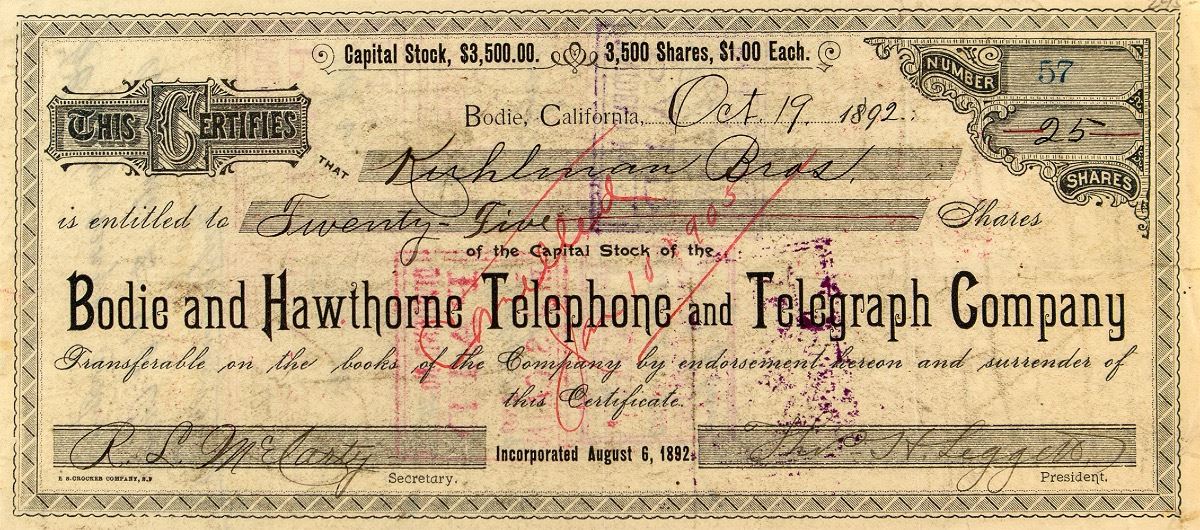 Capital Stock, $3,500.00. 3,500 Shares, $1.00 Each.
NUMBER 57
THIS CERTIFIES
Bodie, California, Oct. 19, 1892.
25
SHARES
THAT Kuhlman Bros.
is entitled to Twenty-Five Shares
of the Capital Stock of the
Bodie and Hawthorne Telephone and Telegraph Company
Transferable on the books of the Company by endorsement hereon and surrender of
this Certificate.
Cancelled
10 1905
R. L. McCarty
Incorporated August 6, 1892.
Thos H Leggett
Secretary.
President.
E S. CROCKER COMPANY, S.F